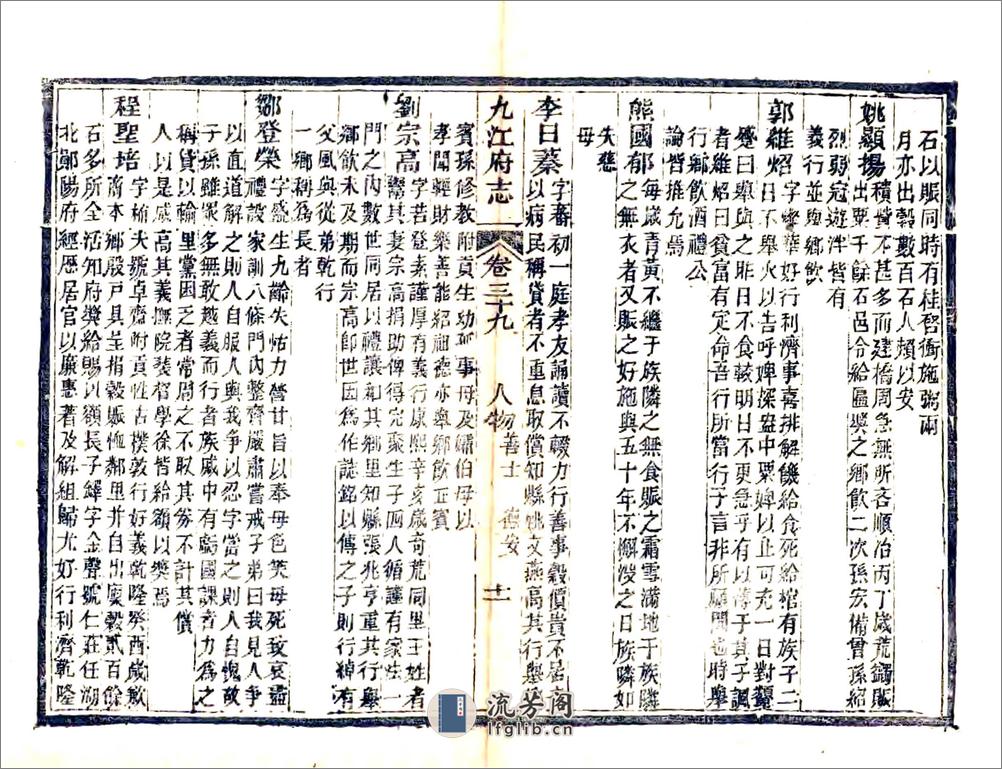 石以賑同時有桂啓衝施粥兩
月亦出穀數百石人賴以安
姚顯揚積貲不甚多而建橋周急無所吝順治丙丁歲荒蠲賑
出粟千餘石邑令給匾奬之鄉飲二次孫宏備曾孫紹
烈弼寇遊泮皆有
義行並與鄉飲
郭維炤字燮華好行利濟事喜排解饑給食死給棺有族子二
日不舉火以告呼婢探盎中粟婢以止可充一日對鼟
蹙曰舉與之昨日不食較明日不更急乎有以傳于其子諷
者維炤曰貧富有定命吾行所當行子言非所願聞也時舉
行鄉飲酒禮公
論皆推允焉
熊國郁每歲青黃不繼于族隣之無食賑之霜雪滿地于族隣
之無衣者又賑之好施與五十年不懈歿之日族隣如
失慈
母
李日蓁字春初一庭孝友誦讀不輟力行善事穀價貴不居奇
以病民稱貸者不重息取償知縣姚文燕高其行舉
九江府志 卷三十九 人物 善士 德安 十一
賓孫修教附貢生幼孤事母及孀伯母以
孝聞輕財樂善能紹祖德亦舉鄉飲正賓
劉宗高字若登素謹厚有義行康熙辛亥歲奇荒同里王姓者
鬻其妻宗高捐助俾得完聚生子四人循謹有家法一
門之內數世同居以禮讓和其鄉里知縣張兆亨重其行舉
鄉飲未及期而宗高卽世因爲作誌銘以傳之子則行綽有
父風與從弟乾行
一鄉稱爲長者
鄒登榮字盛生九齡失怙力營甘旨以奉母色笑母死致哀盡
禮設家訓八條門內整齊嚴肅嘗戒子弟曰我見人爭
以直道解之則人自服人與我爭以忍字當之則人自愧故
子孫雖眾多無敢越義而行者族戚中有虧國課者力爲之
稱貸以輸里黨因乏者常周之不取其劵不計其償
人以是咸高其義撫院裴督學徐皆給額以奬焉
程聖培字榆夫號卓齋附貢性古樸敦行好義乾隆癸酉歲歉
培本鄉殷戶具呈捐穀賑恤鄰里并自出廒穀貳百餘
石多所全活知府奬給賜以額長子鐸字金聲號仁莊任湖
北鄖陽府經歷居官以廉惠著及解組歸尤好行利濟乾隆
流芳阁
lfglib.cn